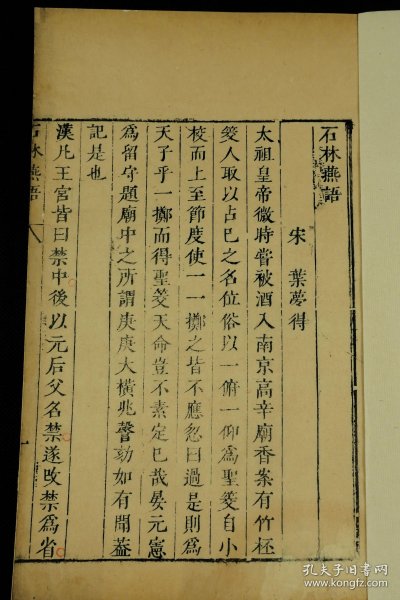 石林燕語
宋　葉夢得
太祖皇帝微時嘗被酒入南京高辛廟香案有竹桮
筊人取以占巳之名位俗以一俯一仰爲聖筊自小
校而上至節度使一一擲之皆不應忽曰過是則爲
天子乎一擲而得聖筊天命豈不素定巳哉晏元憲
爲留守題廟中之所謂庚庚大橫兆謦欬如有聞葢
記是也
漢凡王宮皆曰禁中後以元后父名禁遂改禁爲省
石林燕語
孔夫子旧书网
www.kongfz.com